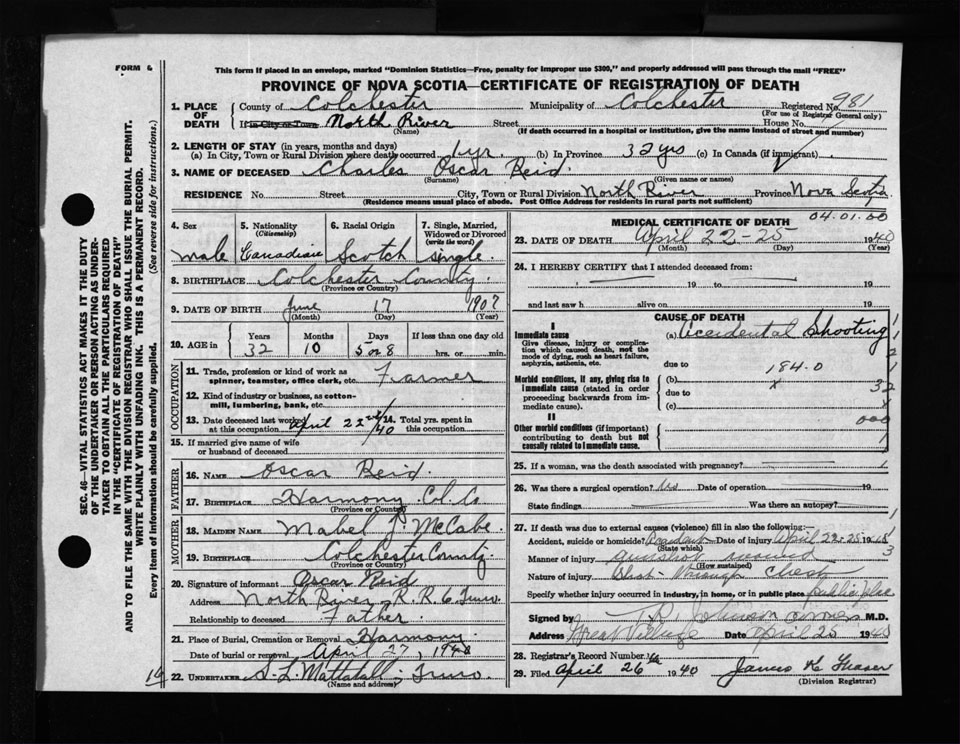 FORM 6
This form if placed in an envelope, marked "Dominion Statistics—Free, penalty for improper use $300," and properly addressed will pass through the mail "FREE"
PROVINCE OF NOVA SCOTIA—CERTIFICATE OF REGISTRATION OF DEATH
1. PLACE OF DEATH
County of Colchester Municipality of Colchester Registered No. 981
(For use of Registrar General only)
If in City or Town North River Street House No.
(Name) (If death occurred in a hospital or institution, give the name instead of street and number)
2. LENGTH OF STAY (in years, months and days)
(a) In City, Town or Rural Division where death occurred 1 yr. (b) In Province 32 yrs (c) In Canada (if immigrant)
3. NAME OF DECEASED Charles Oscar Reid
(Surname) (Given name or names)
RESIDENCE No. Street City, Town or Rural Division North River Province Nova Scotia
(Residence means usual place of abode. Post Office Address for residents in rural parts not sufficient)
4. Sex male
5. Nationality (Citizenship) Canadian
6. Racial Origin Scotch
7. Single, Married, Widowed or Divorced (write the word) single.
8. BIRTHPLACE Colchester County
(Province or Country)
9. DATE OF BIRTH June 17 1907
(Month) (Day) (Year)
10. AGE in Years 32 Months 10 Days 5 or 8 If less than one day old hrs. or min.
OCCUPATION
11. Trade, profession or kind of work as spinner, teamster, office clerk, etc. Farmer
12. Kind of industry or business, as cotton-mill, lumbering, bank, etc.
13. Date deceased last worked at this occupation April 22nd/40
14. Total yrs. spent in this occupation
15. If married give name of wife or husband of deceased
FATHER
16. NAME Oscar Reid.
17. BIRTHPLACE Harmony Col. Co
(Province or Country)
MOTHER
18. MAIDEN NAME Mabel J. McCabe
19. BIRTHPLACE Colchester County
(Province or Country)
20. Signature of informant Oscar Reid
Address North River R.R. 6 Truro.
Relationship to deceased Father
21. Place of Burial, Cremation or Removal Harmony.
Date of burial or removal April 27, 1940
22. UNDERTAKER S. L. Mattatall, Truro.
(Name and address)
04.01.00
MEDICAL CERTIFICATE OF DEATH
23. DATE OF DEATH April 22-25 1940
(Month) (Day) (Year)
24. I HEREBY CERTIFY that I attended deceased from:
19 to 19
and last saw h alive on 19
CAUSE OF DEATH
I
Immediate cause (a) Accidental Shooting
Give disease, injury or complication which caused death, not the mode of dying, such as heart failure, asphyxia, asthenia, etc.
due to 184.0
Morbid conditions, if any, giving rise to immediate cause (stated in order proceeding backwards from immediate cause).
(b) x 32
due to
(c)
II
000
Other morbid conditions (if important) contributing to death but not causally related to immediate cause.
25. If a woman, was the death associated with pregnancy?
26. Was there a surgical operation? No Date of operation 19
State findings Was there an autopsy?
27. If death was due to external causes (violence) fill in also the following:—
Accident, suicide or homicide? Accident Date of injury April 22-25 1940
(State which)
Manner of injury gunshot wound
(How sustained)
Nature of injury Shot through chest
Specify whether injury occurred in Industry, in home, or in public place public place
Signed by T. R. Johnson Coroner M.D.
Address Great Village Date April 25 1940
28. Registrar's Record Number
29. Filed April 26 1940 James H Fraser
(Division Registrar)
14
SEC. 46—VITAL STATISTICS ACT MAKES IT THE DUTY
OF THE UNDERTAKER OR PERSON ACTING AS UNDER-
TAKER TO OBTAIN ALL THE PARTICULARS REQUIRED
IN THE "CERTIFICATE OF REGISTRATION OF DEATH"
AND TO FILE THE SAME WITH THE DIVISION REGISTRAR WHO SHALL ISSUE THE BURIAL PERMIT.
WRITE PLAINLY WITH UNFADING INK. THIS IS A PERMANENT RECORD.
Every item of information should be carefully supplied. (See reverse side for instructions.)